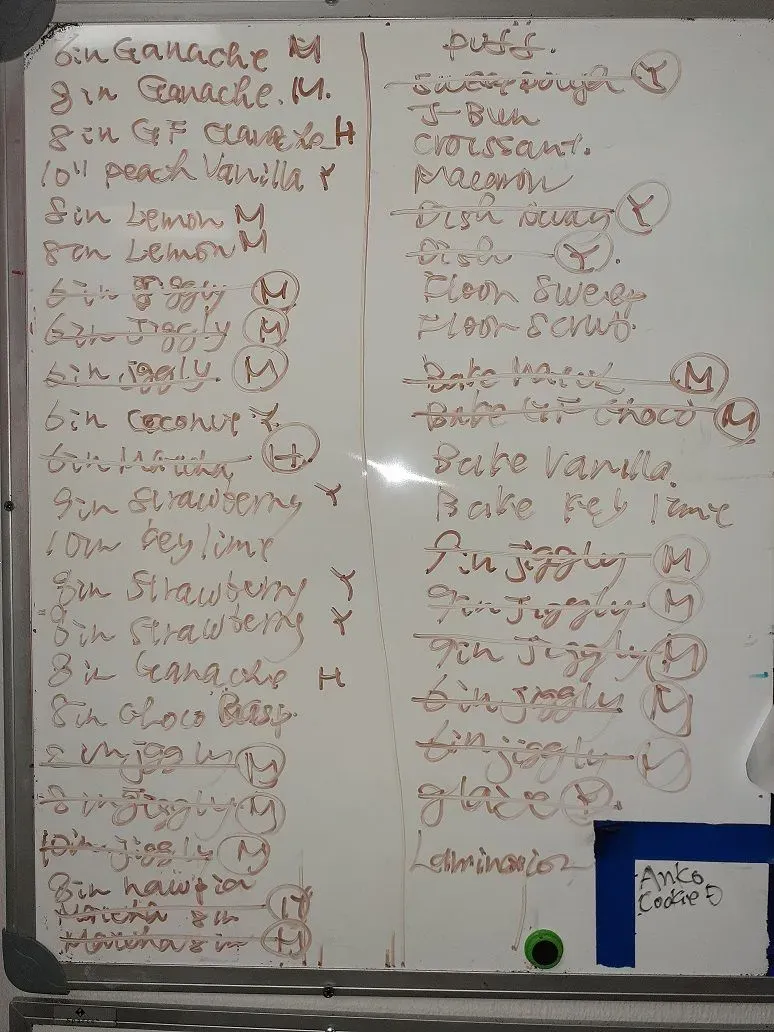 6in Ganache M
8in Ganache. M.
8in GF Ganache H
10" peach Vanilla Y
8in Lemon M
8in Lemon M
6in jiggly M
6in jiggly M
6in jiggly. M
6in Coconut Y.
6in Matcha H
9in Strawberry Y
10in key lime
8in Strawberry Y
8in Strawberry Y
8in Ganache H
8in Choco Rasp.
8in jiggly M
8in jiggly M
10in jiggly M
8in haupia
Matcha 8in H
Matcha 8in H
puff.
Sweet Dough Y
J-Bun
Croissant.
Macaron
Dish Away Y
Dish Y.
Floor Sweep
Floor Scrub.
Bake M
Bake GF Choco M
Bake Vanilla.
Bake key lime
9in jiggly M
9in jiggly M
9in jiggly M
6in jiggly M
6in jiggly M
glaze Y.
Anko
Cookie 5